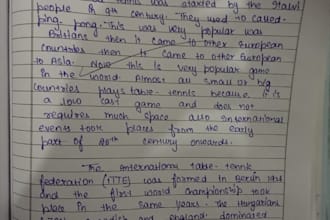 tennis was started by the
people in 9th century. They used to called-
ping pong. This was very popular was
Britians then it came to other European
Countries then it came to other European
to Asia. Now this is very popular game
in the world. Almost all small or big
Countries plays table-tennis because it is
a low cast game and does not
requires much space also International
events took places from the early
part of 20th century onwards.
The International table-tennis
federation (ITTE) was formed in Berlin
and the first world championship took
place in the same years. The Hungarians
and England dominated